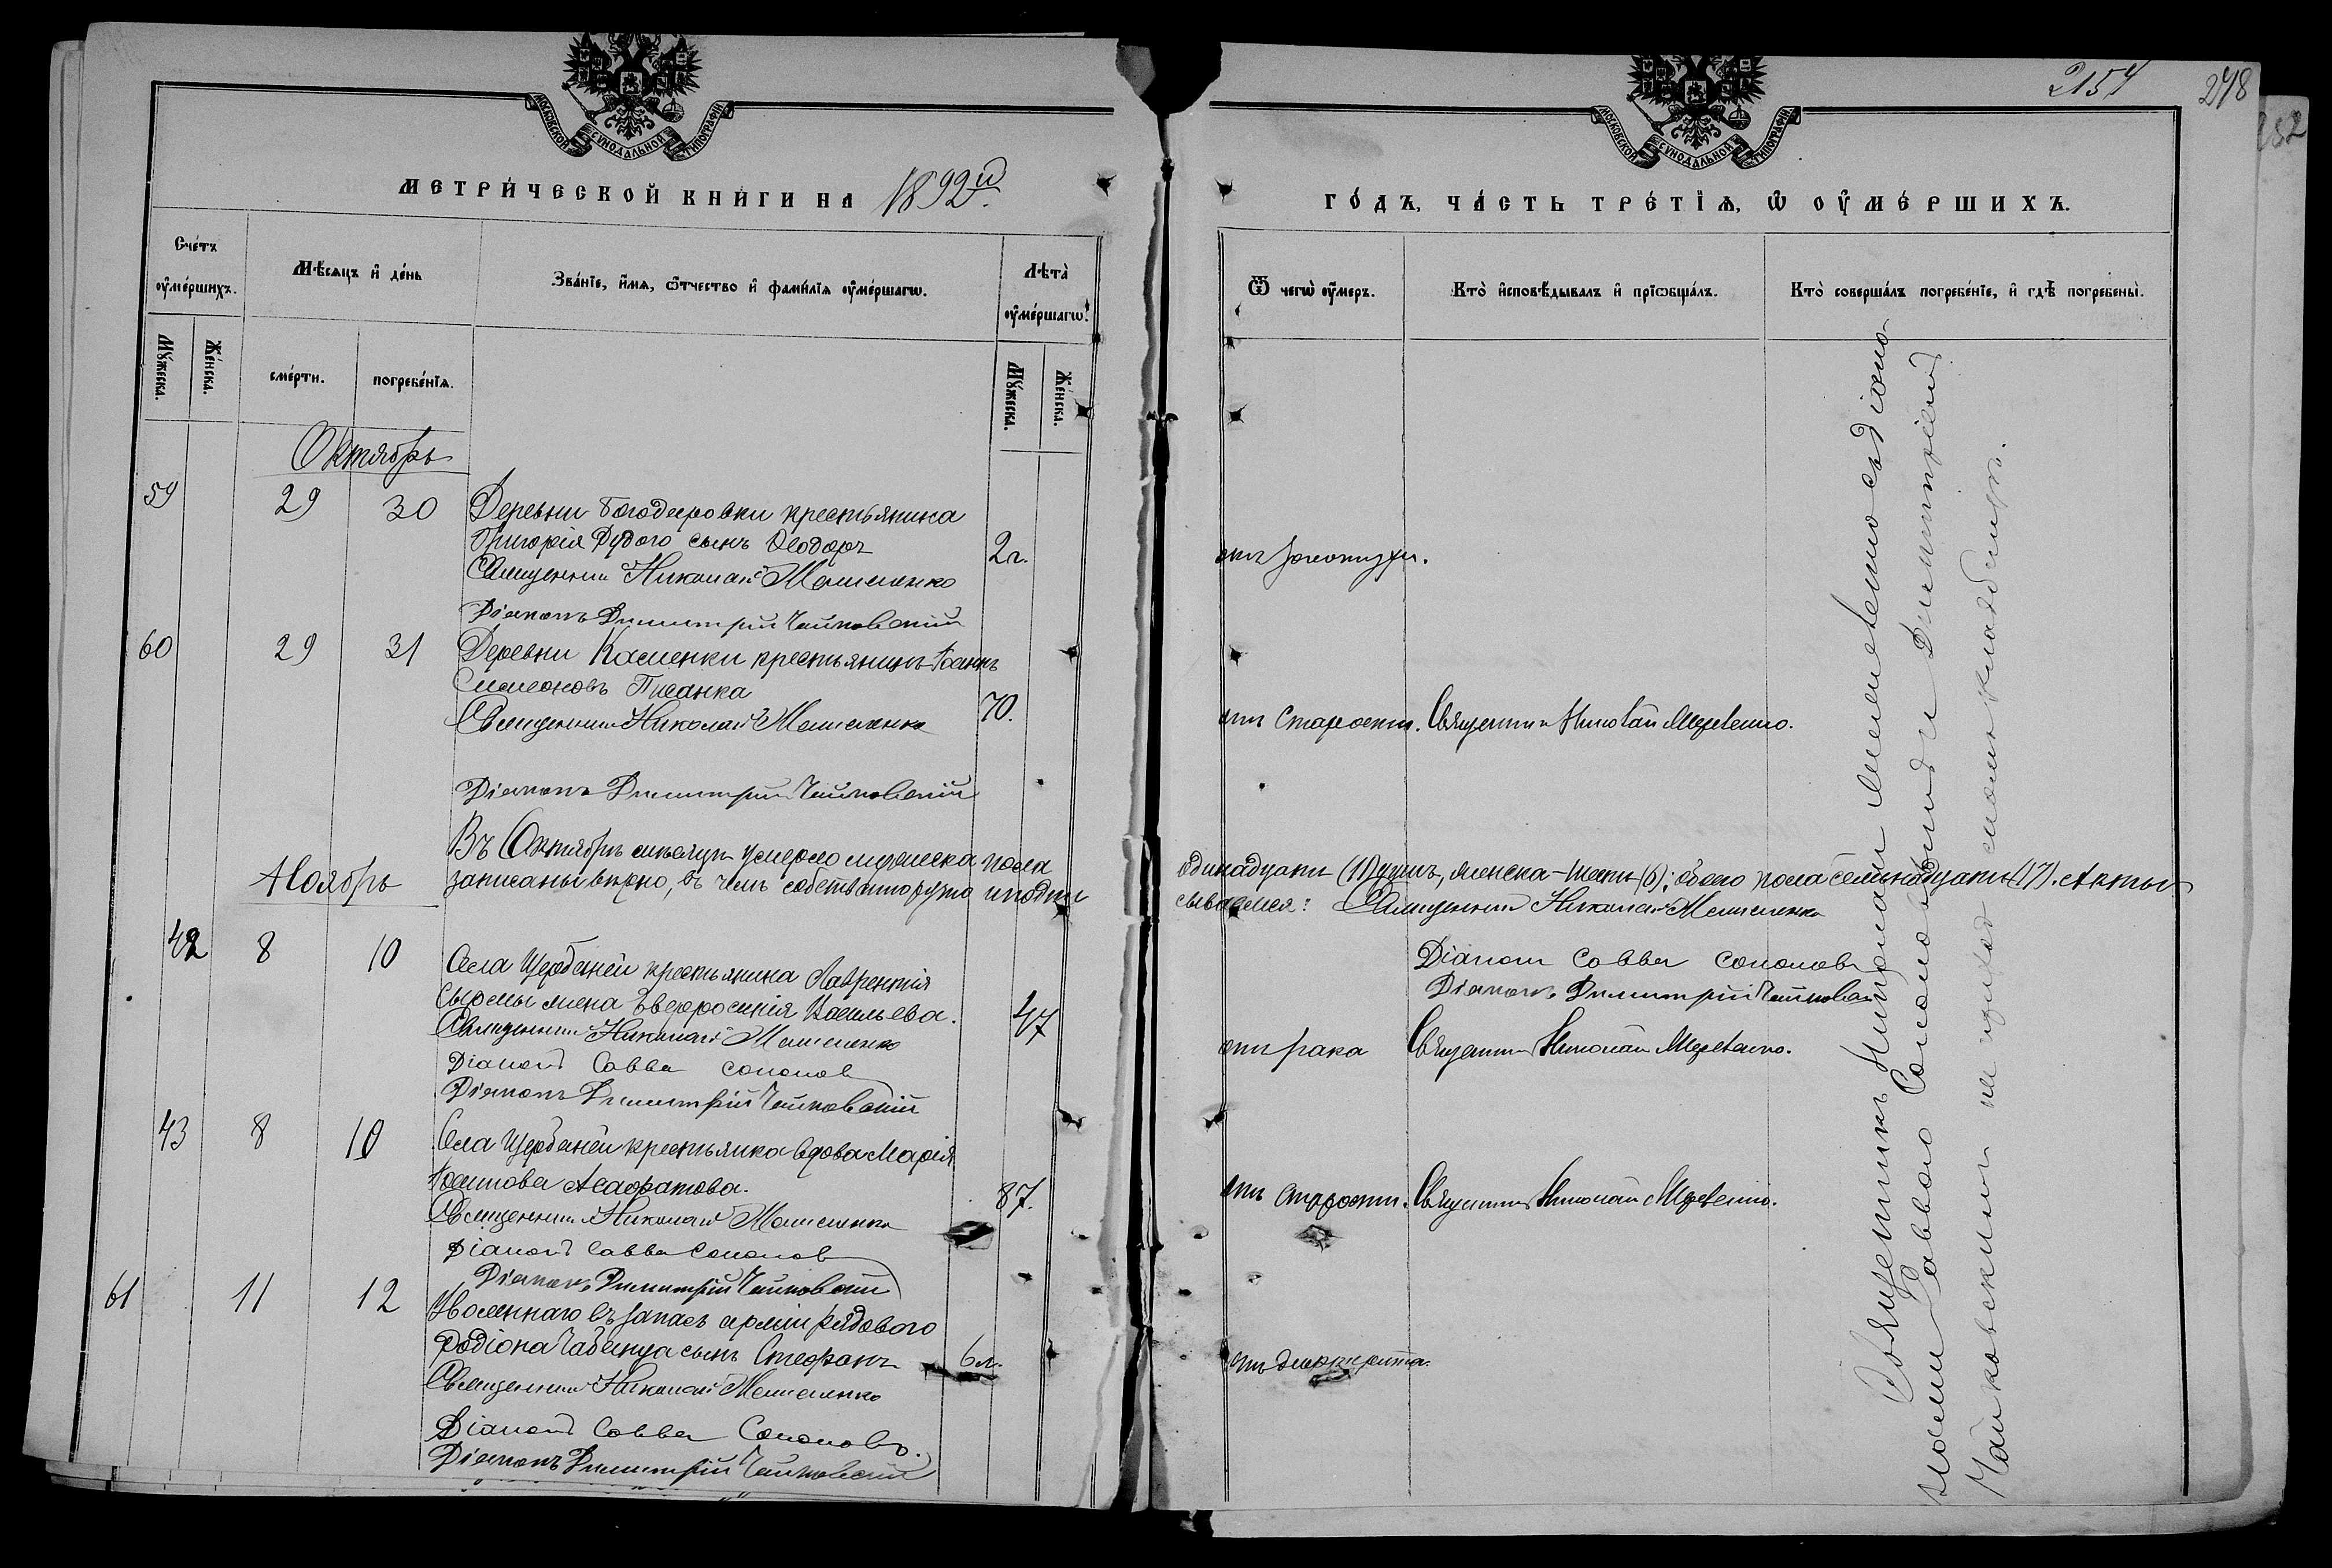 МОСКОВСКОЙ СѴНОДАЛЬНОЙ ТИПОГРАФІИ
МЕТРИЧЕСКОЙ КНИГИ НА 1892й
Счетъ оумершихъ.
Мѣсяцъ и день
Званіе, имя, отчество и фамилія оумершагѡ.
Лѣта оумершагѡ.
Мужеска.
Женска.
смерти.
погребенія.
Мужеска.
Женска.
Октябрь
59 29 30 Деревни крестьянина
Григорія Рудого сынъ Ѳеодоръ 2г.
Священникъ Николай
Діаконъ Димитрій Чайковскій
60 29 31 Деревни Каменки крестьянинъ Іоаннъ
Симеоновъ Писанка
Священникъ Николай 70.
Діаконъ Димитрій Чайковскій
Въ Октябрѣ мѣсяцѣ умерло мужеска пола
Ноябрь
записаны вѣрно, въ чемъ собственноручно и подпи
42 8 10 Села Щербаней крестьянина Лаврентія
Сыромы жена Евфросинія Васильева. 47
Священникъ Николай
Діаконъ Савва Соколовъ
Діаконъ Димитрій Чайковскій
43 8 10 Села Щербаней крестьянка вдова Марія
87.
Священникъ Николай
Діаконъ Савва Соколовъ
Діаконъ Димитрій Чайковскій
61 11 12 Уволеннаго въ запасъ арміи рядового
Родіона Чабанца сынъ Стефанъ 6л.
Священникъ Николай
Діаконъ Савва Соколовъ.
Діаконъ Димитрій Чайковскій
2154 248
252
МОСКОВСКОЙ СѴНОДАЛЬНОЙ ТИПОГРАФІИ
ГОДЪ, ЧАСТЬ ТРЕТІЯ, Ѡ ОУМЕРШИХЪ.
Ѿ чегѡ оумеръ.
Кто исповѣдывалъ и пріѡбщалъ.
Кто совершалъ погребеніе, и гдѣ погребены.
отъ золотухи.
отъ старости. Священникъ Николай
одинадцать (11) душъ, женска-шесть (6); обоего пола семьнадцать (17). Акты
сываемся: Священникъ Николай
Діаконъ Савва Соколовъ
Діаконъ Димитрій Чайковскій
отъ рака Священникъ Николай
отъ старости. Священникъ Николай
отъ дифтерита.
Священникъ Николай съ діако
нами Саввою Соколовымъ и Димитріемъ
Чайковскимъ на приход скомъ кладбищѣ.